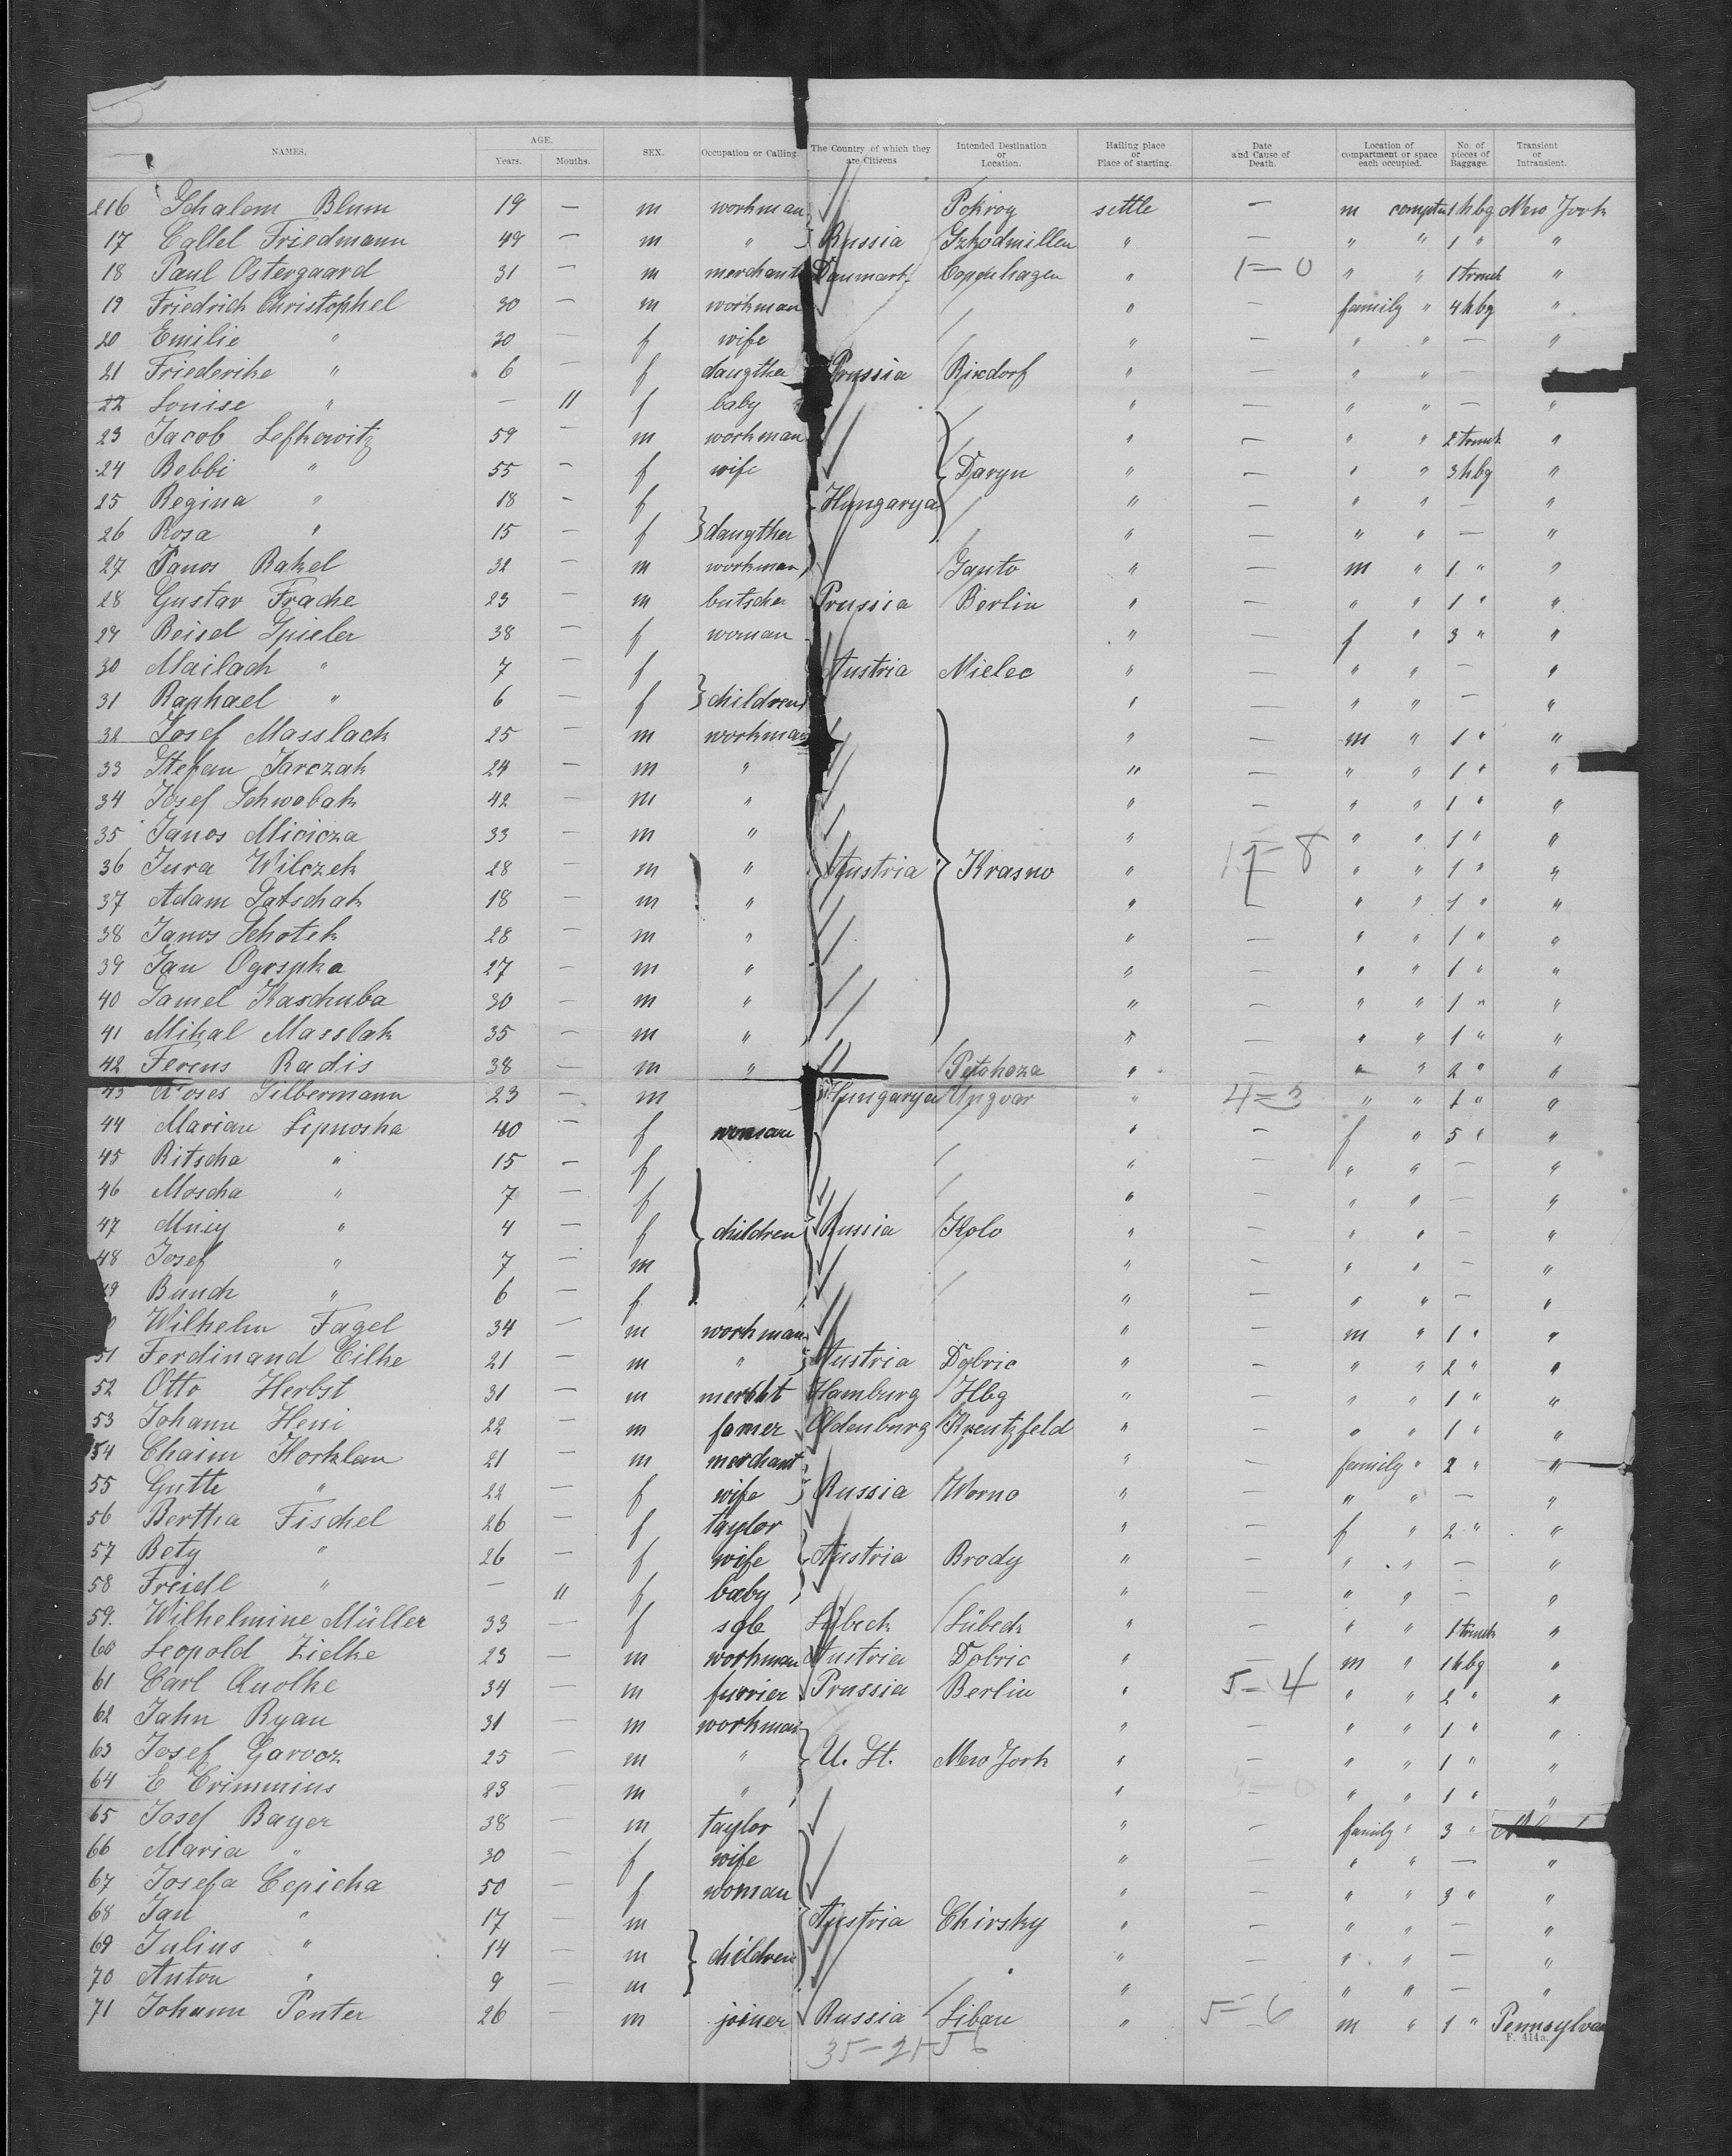 NAMES. AGE. Years. Months. SEX. Occupation or Calling. The Country of which they are Citizens Intended Destination or Location. Hailing place or Place of starting. Date and Cause of Death. Location of compartment or space each occupied. No. of pieces of Baggage. Transient or Intransient.
216 Schalem Blum 19 — m workman Pokroy settle — m comptm 1 hbg New York
17 Callel Friedmann 49 — m " Russia " — " " 1 " "
18 Paul Ostergaard 31 — m merchant Danmark Copenhagen " 1 — 0 " " 1 trunk "
19 Friedrich Christophel 30 — m workman " — family " 4 hbg "
20 Emilie " 30 — f wife " — " " — "
21 Friederike " 6 — f daugther Prussia Rixdorf " — " " —
22 Louise " — 11 f baby " — " " — "
23 Jacob Lefkowitz 59 — m workman " — " " 2 trunk "
24 Bebbi " 55 — f wife Daryn " — " " 3 hbg "
25 Regina " 18 — f Hungarya " — " " — "
26 Rosa " 15 — f daugther " — " " — "
27 Janos Bakel 32 — m workman Ganto " — m " 1 " "
28 Gustav Frache 23 — m butscher Prussia Berlin " — " " 1 " "
29 Beisel Spieler 38 — f woman " — f " 3 " "
30 Mailach " 7 — f Austria Mielec " — " " — "
31 Raphael " 6 — f children " — " " — "
32 Josef Masslack 25 — m workman " — m " 1 " "
33 Stefan Jarczak 24 — m " " — " " 1 " "
34 Josef Schwabak 42 — m " " — " " 1 " "
35 Janos Micicza 33 — m " " — " " 1 " "
36 Jura Wilczek 28 — m " Austria Krasno " 17 — 8 " " 1 " "
37 Adam Satschak 18 — m " " — " " 1 " "
38 Janos Schotek 28 — m " " — " " 1 " "
39 Jan Ogrspka 27 — m " " — " " 1 " "
40 Samel Kaschuba 30 — m " " — " " 1 " "
41 Mihal Masslak 35 — m " " — " " 1 " "
42 Ferens Radis 38 — m " Petohaza " — " " 2 " "
43 Moses Silbermann 23 — m Hungarya Ungvar " 4 = 3 " " 1 " "
44 Marian Lipnosha 40 — f woman " — f " 5 " "
45 Ritscha " 15 — f " — " " — "
46 Moscha " 7 — f " — " " — "
47 Mniy " 4 — f children Russia Kolo " — " " — "
48 Josef " 7 — m " — " " — "
49 Bunch " 6 — f " — " " — "
Wilhelm Fagel 34 — m workman " — m " 1 " "
51 Ferdinand Cilke 21 — m " Austria Dobric " — " " 2 " "
52 Otto Herbst 31 — m mercht Hamburg Hbg " — " " 1 " "
53 Johann Heni 22 — m famer Oldenburg Kreutzfeld " — " " 1 " "
54 Chaim Korklan 21 — m merchant " — family " 2 " "
55 Gutte " 22 — f wife Russia Worno " — " " — "
56 Bertha Fischel 26 — f taylor " — f " 2 " "
57 Bety " 26 — f wife Austria Brody " — " " — "
58 Freidl " — 11 f baby " — " " — "
59. Wilhelmine Müller 33 — f sgle Lübeck Lübeck " — " " 1 trunk "
60 Leopold Zielke 23 — m workman Austria Dobric " — m " 1 hbg "
61 Carl Quolke 34 — m furrier Prussia Berlin " 5 — 4 " " 2 " "
62 Jahn Ryan 31 — m workman " — " " 1 " "
63 Josef Garvoz 25 — m " U. St. New York " — " " 1 " "
64 E Crimmins 23 — m " " 3 — 0 " " 1 " "
65 Josef Bayer 38 — m taylor " — family " 3 "
66 Maria " 30 — f wife " — " " — "
67 Josefa Cepicka 50 — f woman " — " " 3 " "
68 Jan " 17 — m Austria Chirsky " — " " — "
69 Julius " 14 — m children " — " " — "
70 Anton " 9 — m " — " " — "
71 Johann Penter 26 — m joiner Russia Libau " 5 — 6 m " 1 " Pennsylva
F. 414a.
35 — 21 — 56